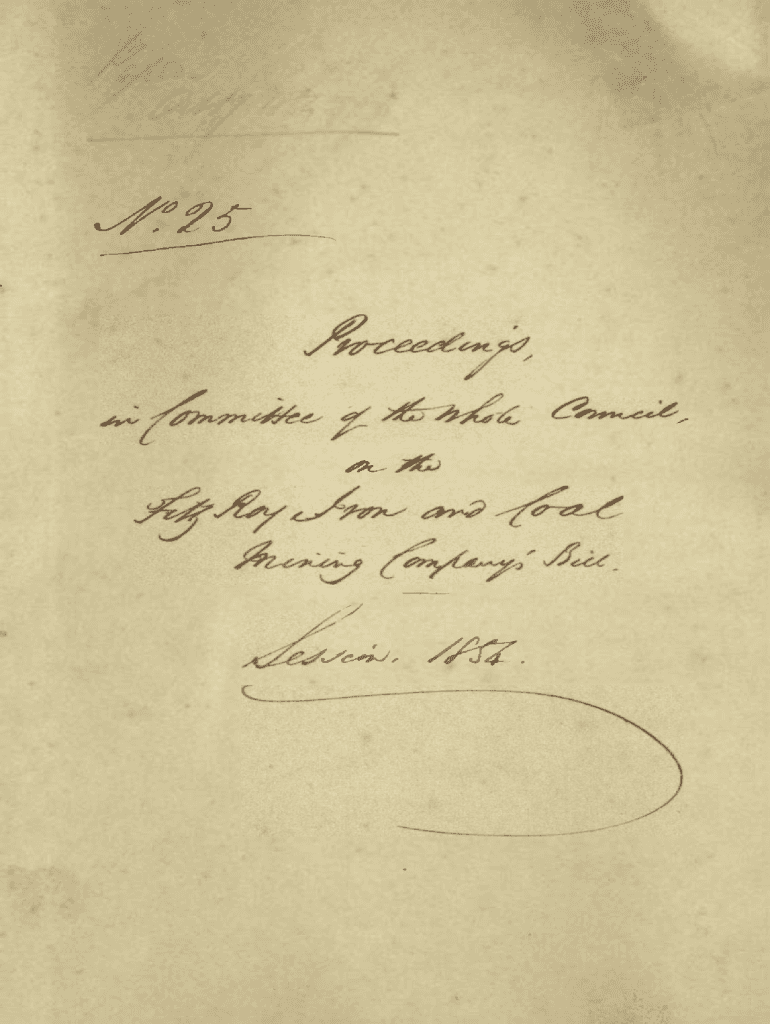 No. 25
Proceedings,
in Committee of the whole Council,
on the
Fitz Roy Iron and Coal
Mining Company's Bill.
Session. 1854.